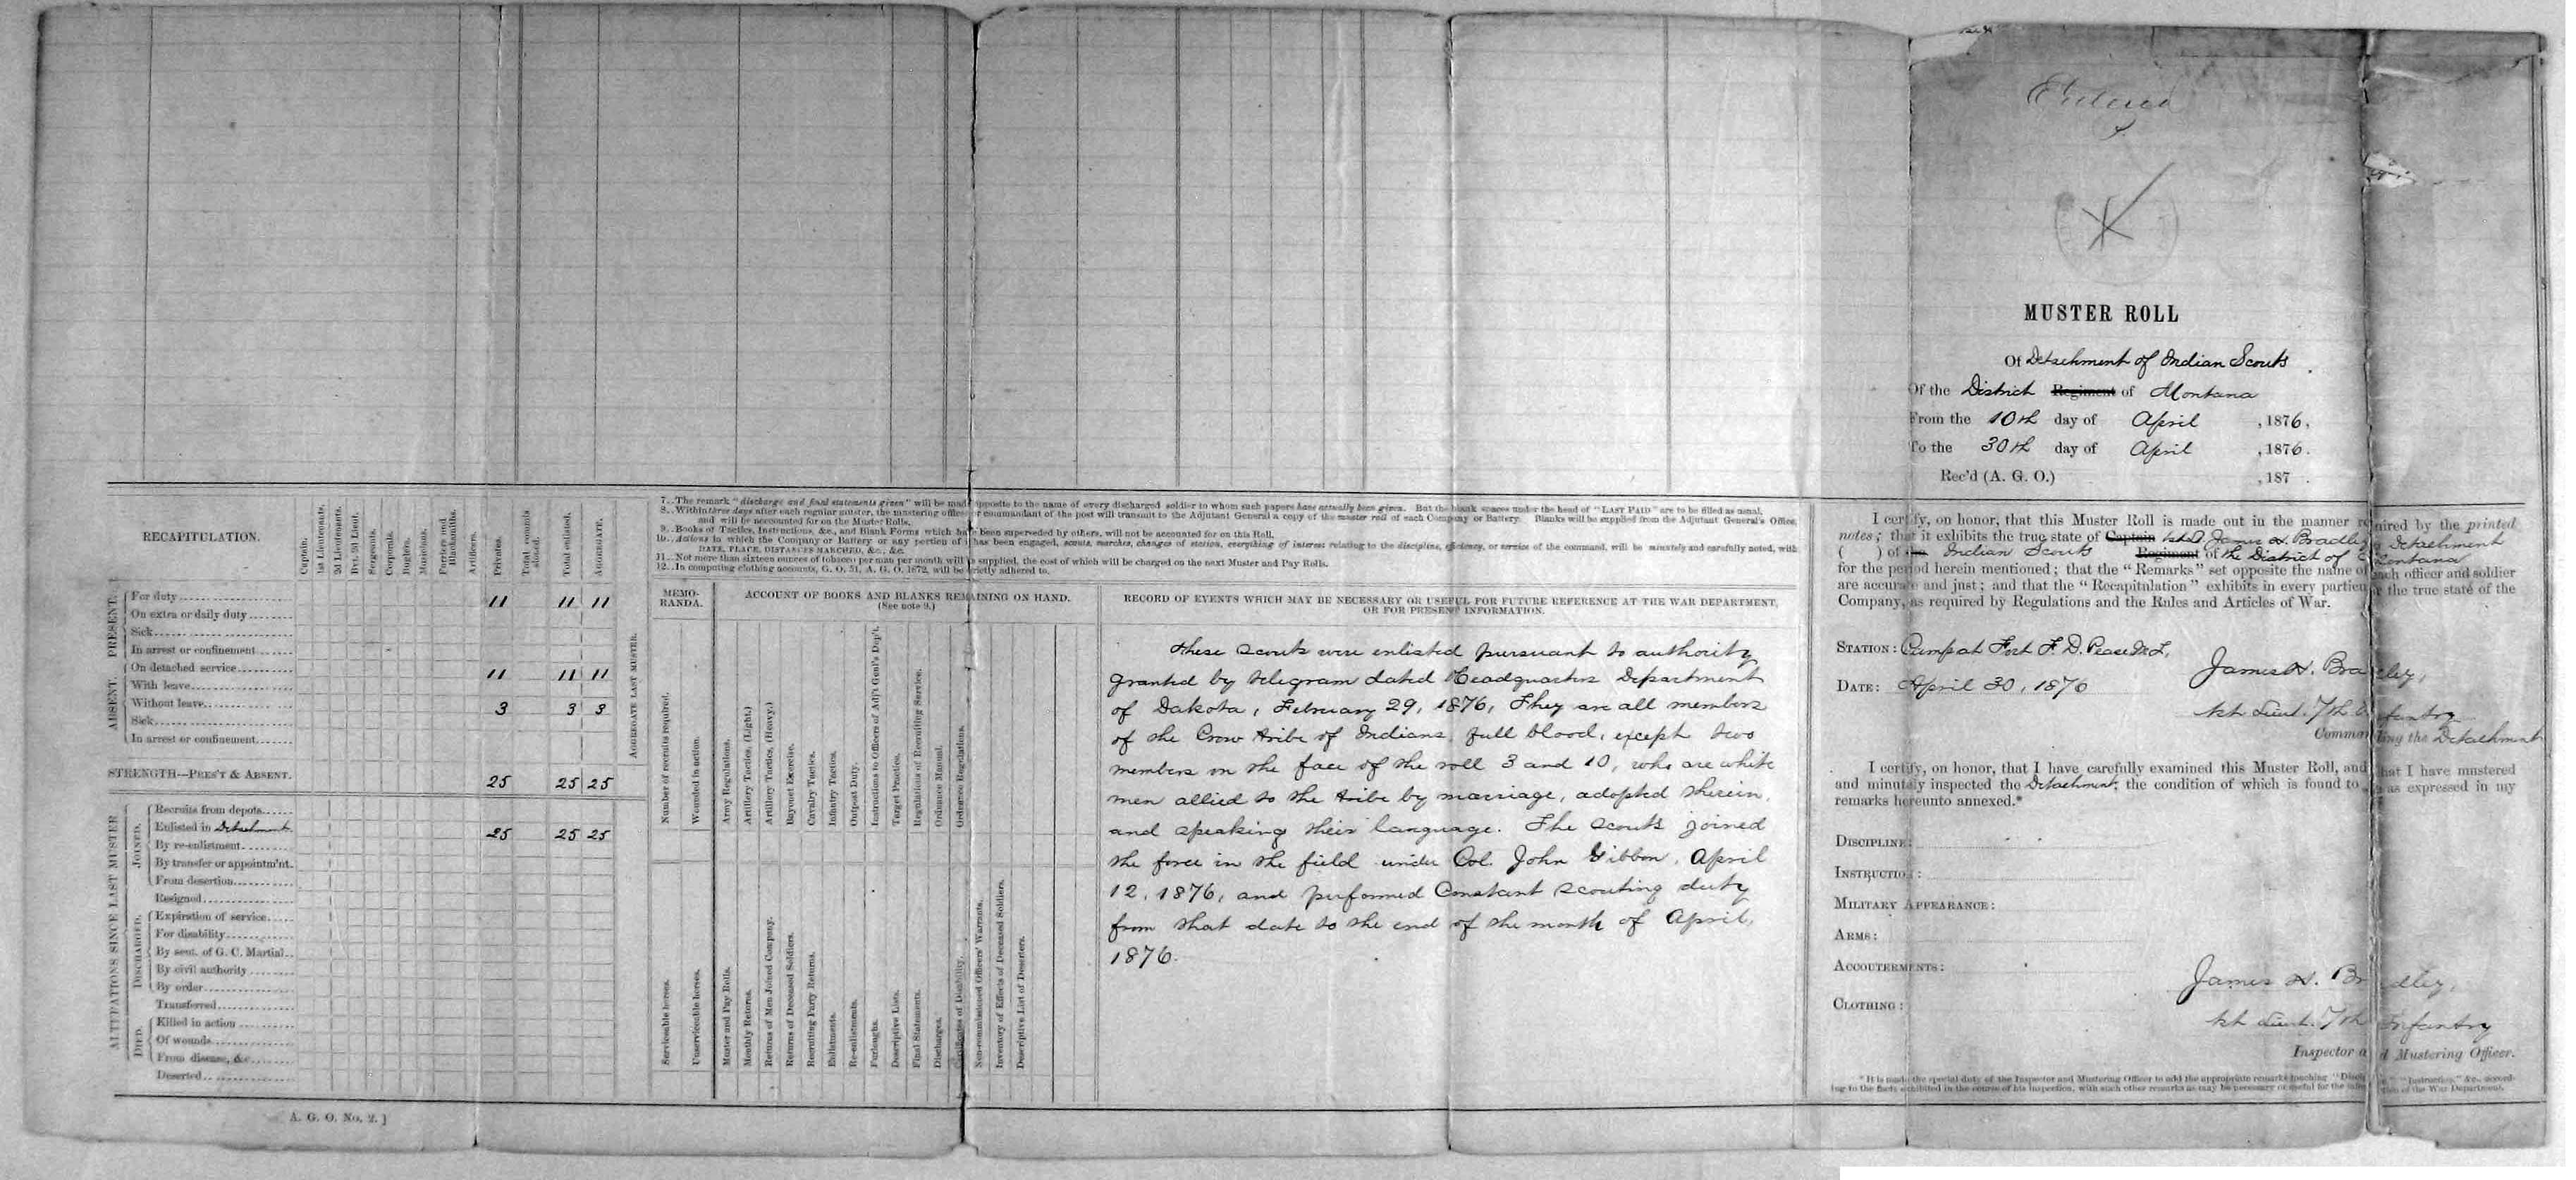 Entered
MUSTER ROLL
Of Detachment of Indian Scouts.
Of the District Regiment of Montana
From the 10th day of April, 1876,
To the 30th day of April, 1876.
Rec'd (A. G. O.) , 187 .
RECAPITULATION.
Captain.
1st Lieutenants.
2d Lieutenants.
Bvt. 2d Lieut.
Sergeants.
Corporals.
Buglers.
Musicians.
Farriers and Blacksmiths.
Artificers.
Privates.
Total enlisted.
AGGREGATE.
AGGREGATE LAST MUSTER.
PRESENT.
For duty 11 11 11
On extra or daily duty
Sick
In arrest or confinement
ABSENT.
On detached service 11 11 11
With leave
Without leave 3 3 3
Sick
In arrest or confinement
STRENGTH—PRES'T & ABSENT. 25 25 25
ALTERATIONS SINCE LAST MUSTER
JOINED.
Recruits from depots
Enlisted in Detachment 25 25 25
By re-enlistment
By transfer or appointm'nt.
From desertion
Resigned
DISCHARGED.
Expiration of service
For disability
By sent. of G. C. Martial
By civil authority
By order
Transferred
DIED.
Killed in action
Of wounds
From disease, &c
Deserted
A. G. O. No. 2. ]
7..The remark "discharge and final statements given" will be made opposite to the name of every discharged soldier to whom such papers have actually been given. But the blank spaces under the head of "LAST PAID" are to be filed as usual.
8..Within three days after each regular muster, the mustering officer or commandant of the post will transmit to the Adjutant General a copy of the muster roll of each Company or Battery. Blanks will be supplied from the Adjutant General's Office,
and will be accounted for on the Muster Rolls.
9..Books of Tactics, Instructions, &c., and Blank Forms which have been superseded by others, will not be accounted for on this Roll.
10..Actions in which the Company or Battery or any portion of it has been engaged, scouts, marches, changes of station, everything of interest relating to the discipline, efficiency, or service of the command, will be minutely and carefully noted, with
DATE, PLACE, DISTANCES MARCHED, &c., &c.
11..Not more than sixteen ounces of tobacco per man per month will be supplied, the cost of which will be charged on the next Muster and Pay Rolls.
12..In computing clothing accounts, G. O. 51, A. G. O. 1872, will be strictly adhered to.
MEMO-
RANDA.
Number of recruits required.
Wounded in action.
Serviceable horses.
Unserviceable horses.
ACCOUNT OF BOOKS AND BLANKS REMAINING ON HAND.
(See note 9.)
Army Regulations.
Artillery Tactics, (Light.)
Artillery Tactics, (Heavy.)
Bayonet Exercise.
Cavalry Tactics.
Infantry Tactics.
Outpost Duty.
Instructions to Officers of Adj't Genl's Dep't.
Target Practice.
Regulations of Recruiting Service.
Ordnance Manual.
Ordnance Regulations.
Muster and Pay Rolls.
Monthly Returns.
Returns of Men Joined Company.
Returns of Deceased Soldiers.
Recruiting Party Returns.
Enlistments.
Re-enlistments.
Furloughs.
Descriptive Lists.
Final Statements.
Discharges.
Certificates of Disability.
Non-commissioned Officers' Warrants.
Inventory of Effects of Deceased Soldiers.
Descriptive List of Deserters.
RECORD OF EVENTS WHICH MAY BE NECESSARY OR USEFUL FOR FUTURE REFERENCE AT THE WAR DEPARTMENT,
OR FOR PRESENT INFORMATION.
These scouts were enlisted pursuant to authority
granted by telegram dated Headquarters Department
of Dakota, February 29, 1876. They are all members
of the Crow tribe of Indians, full blood, except two
members on the face of the roll 3 and 10, who are white
men allied to the tribe by marriage, adopted therein,
and speaking their language. The scouts joined
the force in the field under Col. John Gibbon, April
12, 1876, and performed Constant scouting duty
from that date to the end of the month of April,
1876.
I certify, on honor, that this Muster Roll is made out in the manner required by the printed
notes; that it exhibits the true state of Captain 1st Lt. James H. Bradley's Detachment
( ) of the Indian Scouts Regiment of the District of Montana
for the period herein mentioned; that the "Remarks" set opposite the name of each officer and soldier
are accurate and just; and that the "Recapitulation" exhibits in every particular the true state of the
Company, as required by Regulations and the Rules and Articles of War.
STATION: Camp at Fort F. D. Pease M.T.
James H. Bradley,
DATE: April 30, 1876
1st Lieut. 7th Infantry
Commanding the Detachment
I certify, on honor, that I have carefully examined this Muster Roll, and that I have mustered
and minutely inspected the Detachment; the condition of which is found to be as expressed in my
remarks hereunto annexed.*
DISCIPLINE:
INSTRUCTION:
MILITARY APPEARANCE:
ARMS:
ACCOUTERMENTS:
CLOTHING:
James H. Bradley,
1st Lieut. 7th Infantry
Inspector and Mustering Officer.
*It is made the special duty of the Inspector and Mustering Officer to add the appropriate remarks touching "Discipline," "Instruction," &c., accord-
ing to the facts exhibited in the course of his inspection, with such other remarks as may be necessary or useful for the information of the War Department.